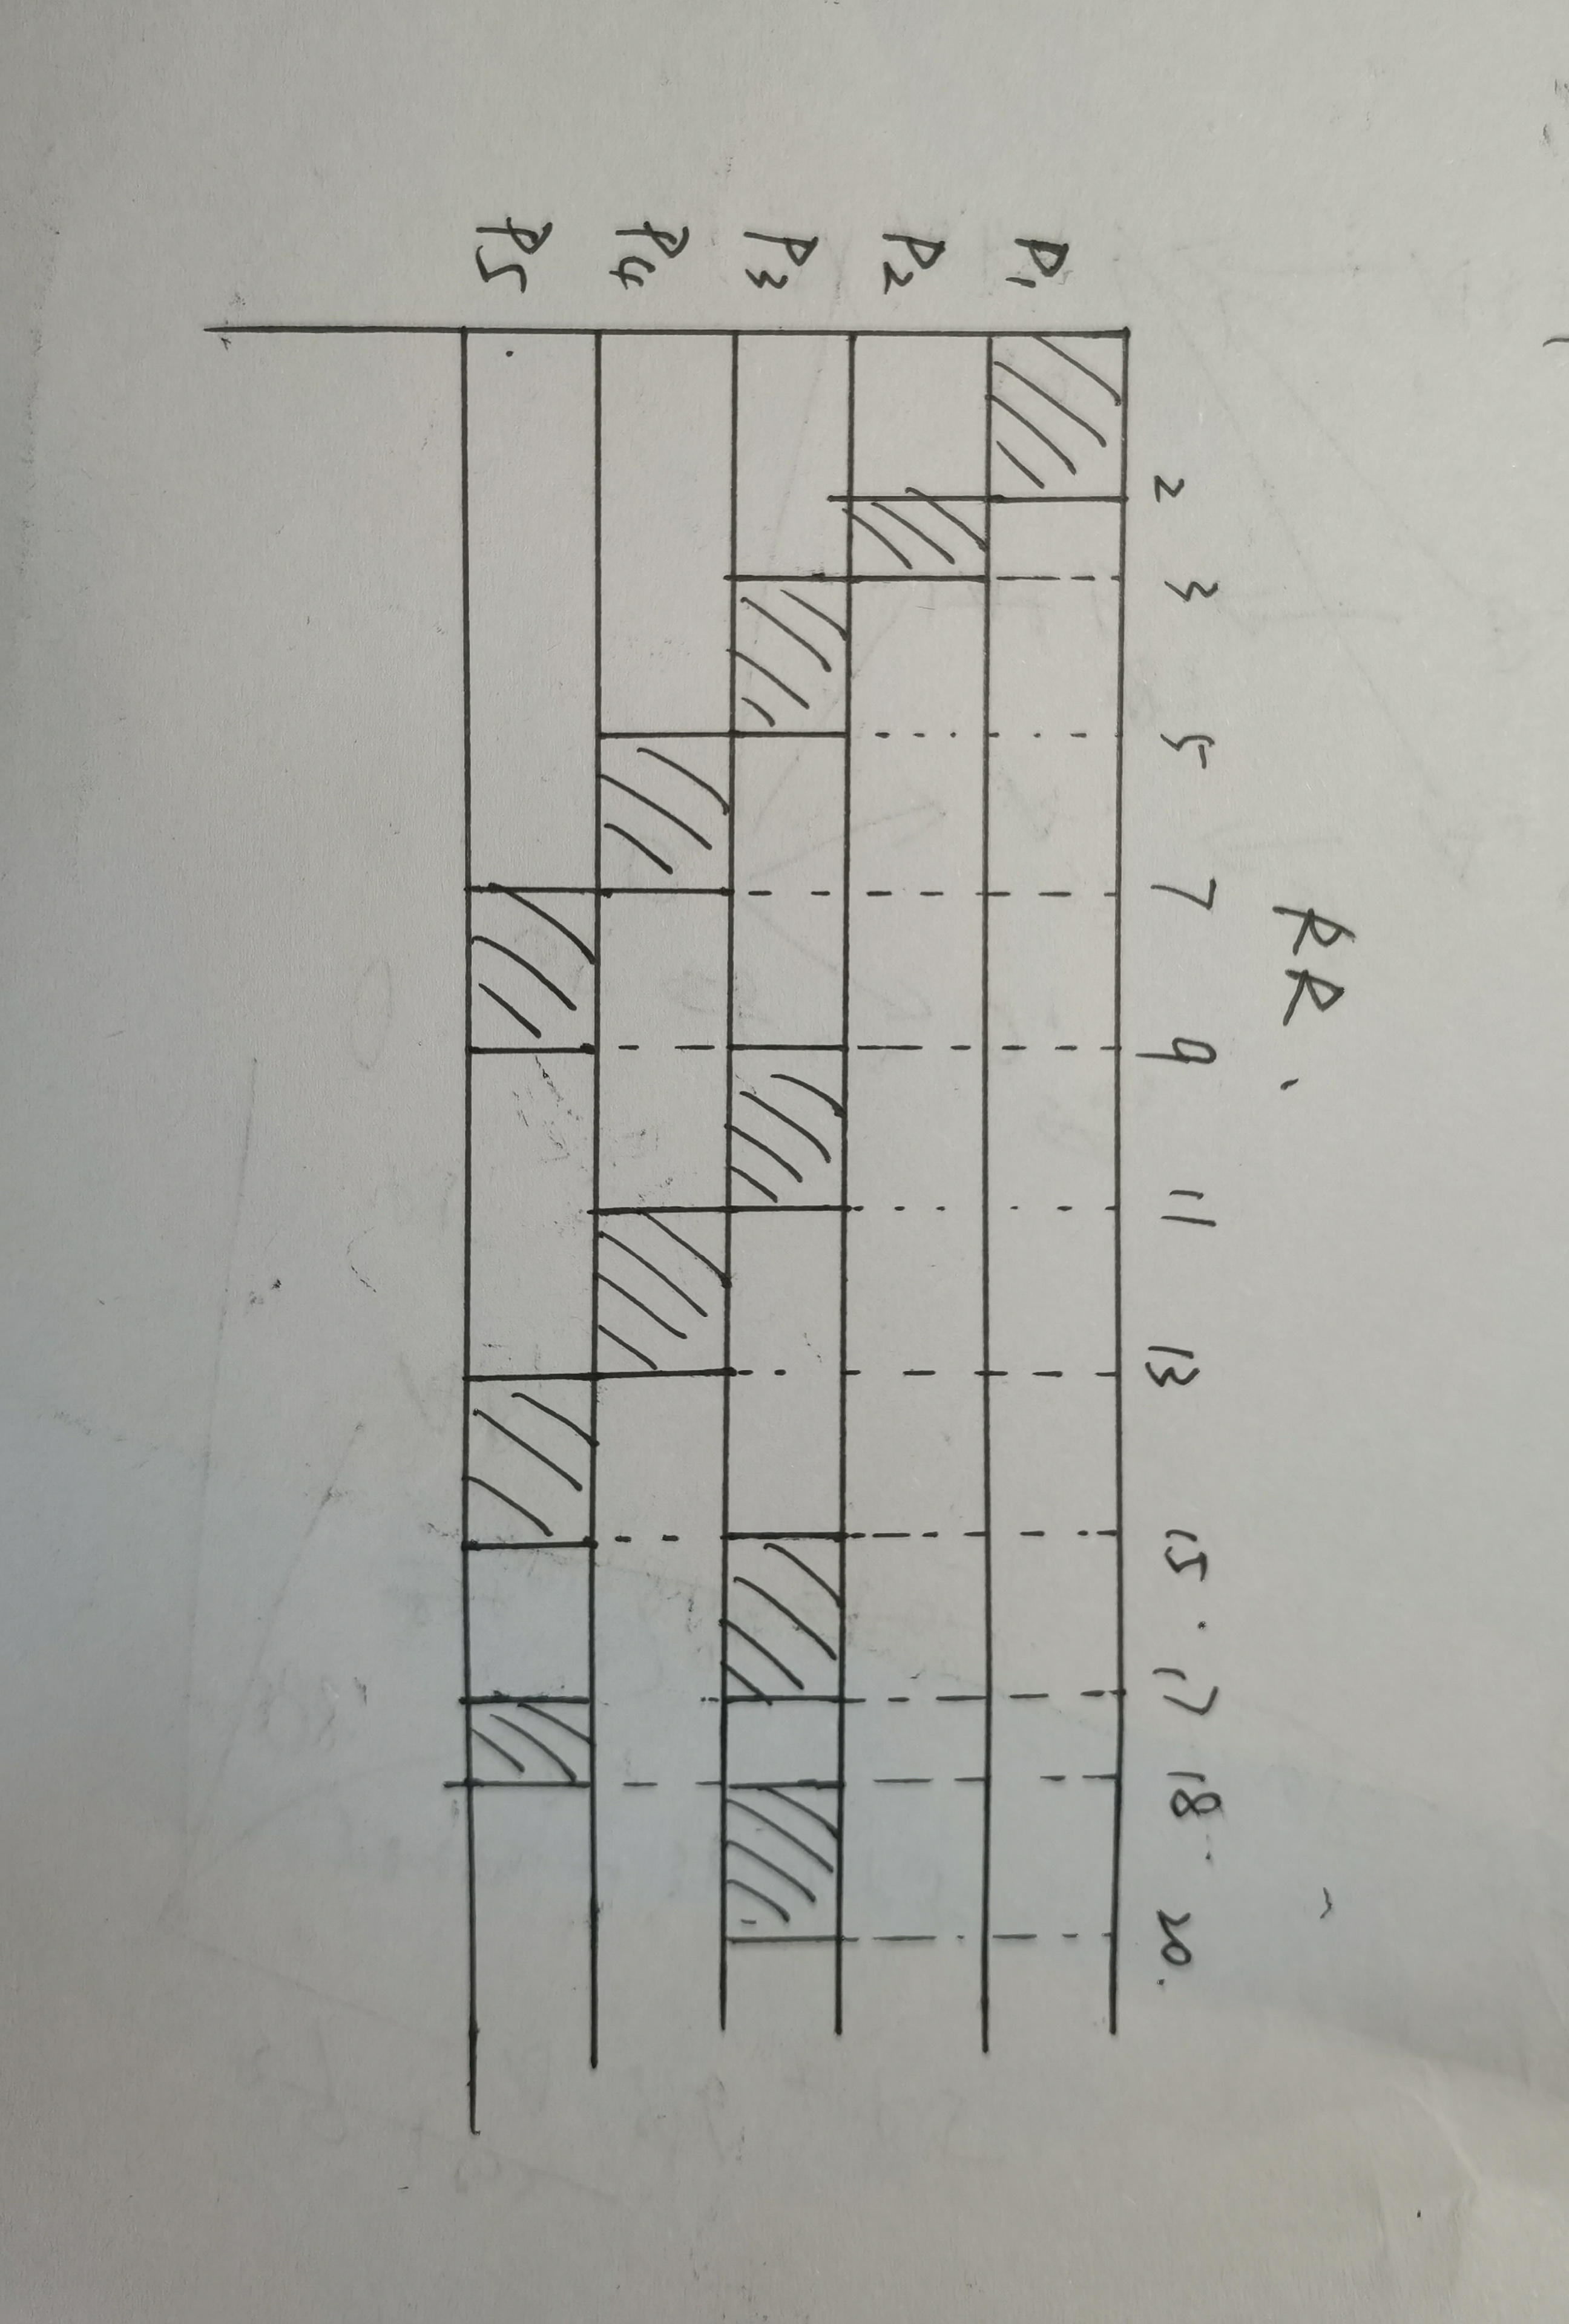 RR.
2 3 5 7 9 11 13 15 17 18 20.
P1
P2
P3
P4
P5